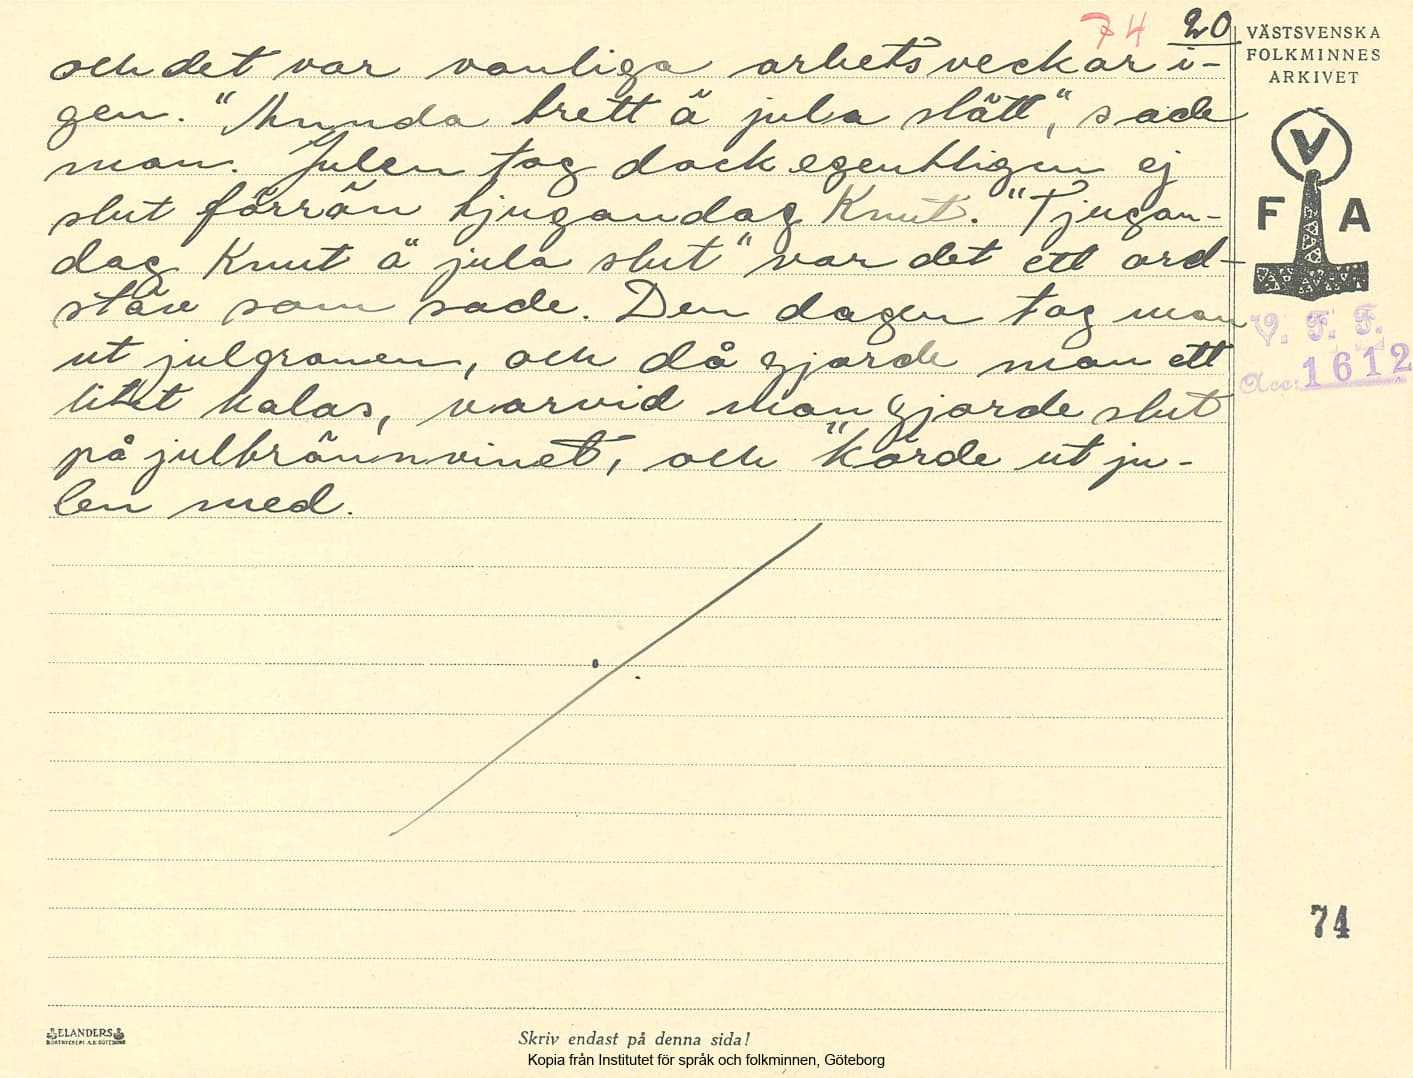 74 20
VÄSTSVENSKA
FOLKMINNES
ARKIVET
V
F A
V. F. F.
Acc: 1612
och det var vanliga arbetsveckor i-
gen. "Annda brett ä jula slätt", sade
man. Julen tog dock egentligen ej
slut förrän tjugondag Knut. "Tjugon-
dag Knut ä jula slut" var det ett ord-
stäv som sade. Den dagen tog man
ut julgranen, och då gjorde man ett
litet kalas, varvid man gjorde slut
på julbrännvinet, och "körde ut ju-
len med.
74
ELANDERS
BOKTRYCKERI A.B. GÖTEBORG
Skriv endast på denna sida!
Kopia från Institutet för språk och folkminnen, Göteborg